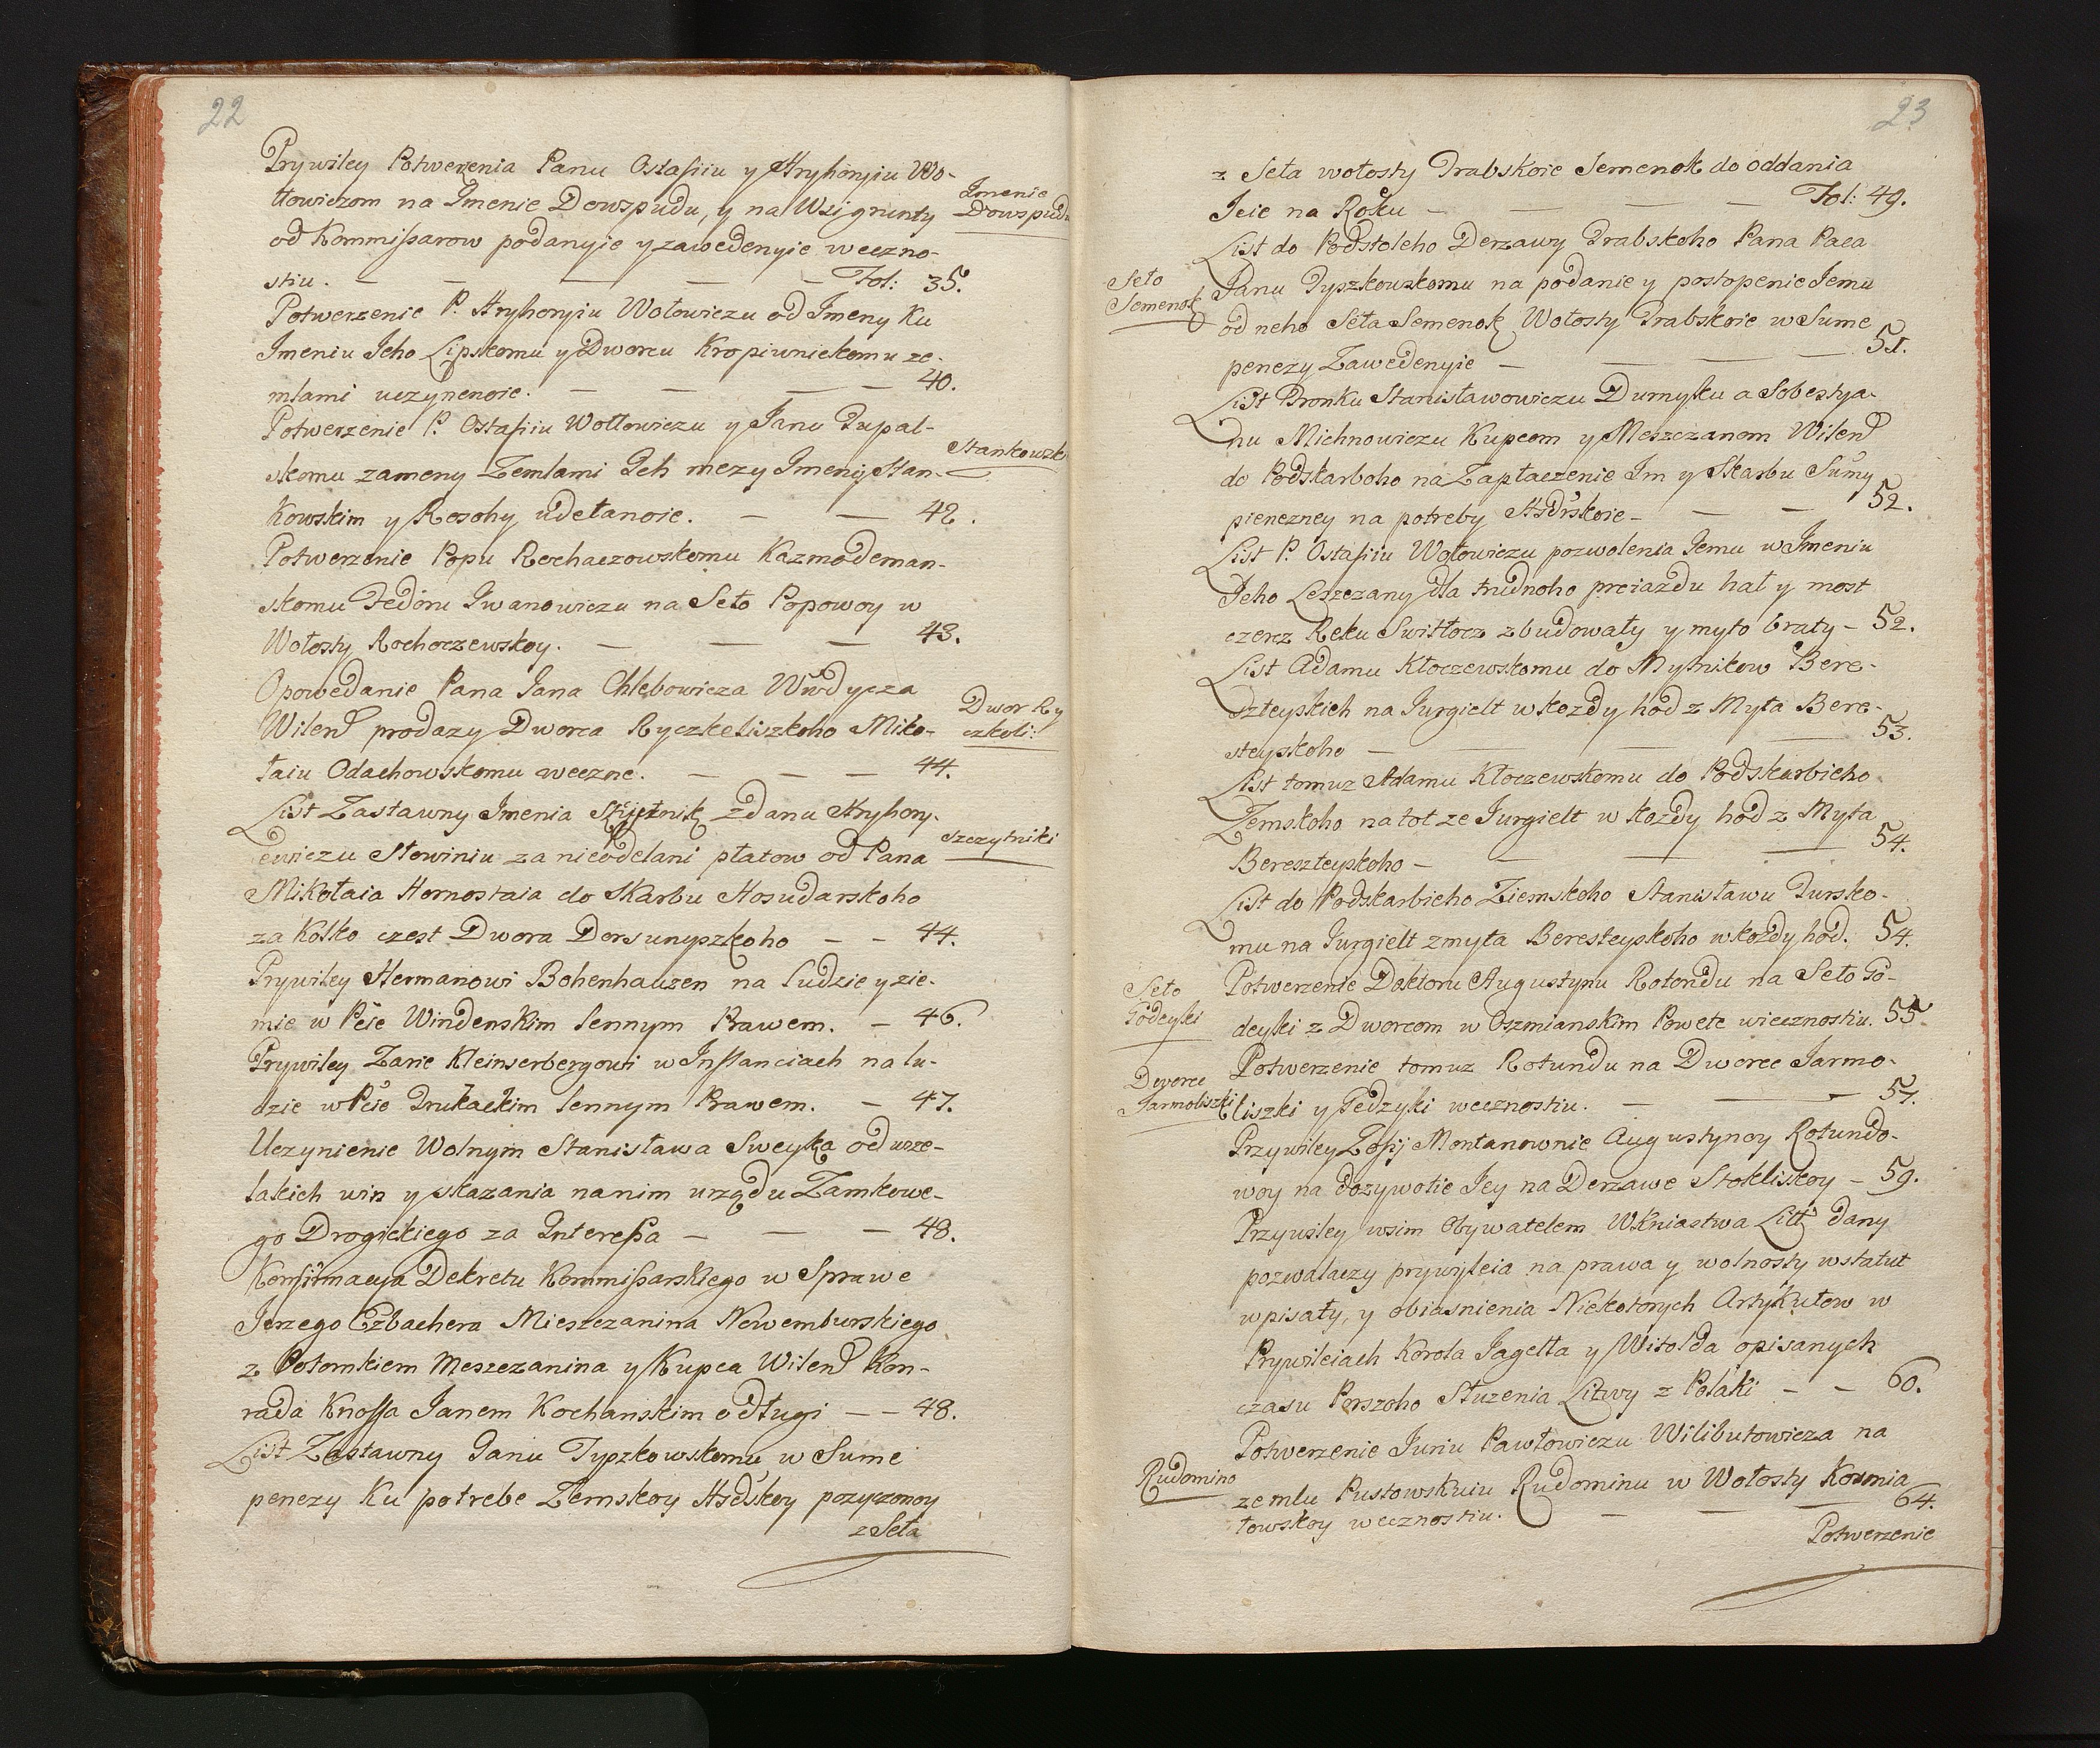 22
Prywiley Potwerżenia Panu Ostafiiu y Hryhoryiu Wo-
łłowiczom na Imenie Dowspudu, y na Wsi grunty
Imenie
Dowspud
od Kommissarow podanyie y zawedenyie weczno-
stiu. — — — — Fol: 35.
Potwerzenie P. Hryhoryiu Wołowiczu od Imeny Ku
Imeniu Jeho Lipskomu y Dworcu Kropiwnickomu ze-
mlami uczynenoie. — — — — 40.
Potwerzenie P. Ostafiiu Wołłowiczu y Janu Tupal-
skomu zameny Zemlami Ich mezy Imenij Stan-
Stankowsk
kowskim y Rosohy udełanoie. — — 42.
Potwerzenie Popu Rochaczowskomu Kazmodeman-
skomu Fedoru Iwanowiczu na Seło Popowoy w
Wołosty Rochoczewskoy. — — — 43.
Opowedanie Pana Jana Chlebowicza Wwdycza
Wilen prodazy Dworca Ryczkeliszkoho Miko-
Dwor Ry
czkeli:
łaiu Odachowskomu weczne. — — — 44.
List Zastawny Imenia z danu Hryhory-
ewiczu Słowiniu za nieodelani płatow od Pana
Szczytniki
Mikołaia Hornostaia do Skarbu Hosudarskoho
za Kolko czest Dwora Dorsunyszkoho — — 44.
Prywiley Hermanowi Bohenhauzen na ludzie y zie-
mie w Pcie Windenskim lennym Prawem. — 46.
Prywiley Zanie Kleinserbergowi w Inflanciach na lu-
dzie w Pcie Trukackim lennym Prawem. — 47.
Uczynienie Wolnym Stanisława Sweyka od wsze-
lakich win y skazania na nim urzędu Zamkowe-
go Drogickiego za Interessa — — — 48.
Konfirmacyja Dekretu Kommissarskiego w Sprawe
Jerzego Ezbachera Mieszczanina Nowemburskiego
z Potomkiem Meszczanina y Kupca Wilen Kon-
rada Knoffa Janem Kochanskim o długi — — 48.
List Zastawny Janu Tyszkowskomu w Sume
penezy Ku potrebe Zemskoy Hsdrskoy pozyczonoy
z Seła
23
z Seła wołosty Trabskoie Semenok do oddania
Jeie na Roku — — — — Fol: 49.
List do Podstoleho Derzawy Trabskoho Pana Paca
Janu Tyszkowskomu na podanie y postopenie Jemu
Seło
Semenok
od neho Seła Semenok Wołosty Trabskoie w Sume
penezy Zawedenyie — — — — 51.
List Bronku Stanisławowiczu Dumysku a Sobestya-
nu Michnowiczu Kupcom y Meszczanom Wilen
do Podskarboho na Zapłaczenie Im y Skarbu Sumy
pienezney na potreby Hsdrskoie — — — 52.
List P. Ostafiiu Wołowiczu pozwolenia Jemu w Imeniu
Jeho Leszczany dla trudnoho preiazdu hat y most
czerez Reku Swisłocz zbudowaty y myto braty — 52.
List Adamu Kłoczewskomu do Mytnikow Bere-
szteyskich na Jurgielt w kozdy hod z Myta Bere-
steyskoho — — — — 53.
List tomuz Adamu Kłoczewskomu do Podskarbieho
Zemskoho na tot ze Jurgielt w kozdy hod z Myta
Bereszteyskoho — — — — 54.
List do Podskarbieho Ziemskoho Stanisławu Tursko-
mu na Jurgielt z myta Beresteyskoho w kozdy hod. 54.
Potwerzenie Doktoru Augustynu Rotondu na Seło Go-
Seło
Godeyki
deyki z Dworcom w Oszmianskim Powete wiecznostiu. 55.
Potwerzenie tomuz Rotundu na Dworec Jarmo-
Dworec
Jarmoliszki
liszki y Gedzyki wecznostiu. — — — 57.
Przywiley Zofij Montanownie Augustynoy Rotundo-
woy na dozywotie Jey na Derzawe Stokliskoy — 59.
Przywiley wsim Obywatelem WKniastwa Litt dany
pozwalaczy prywileia na prawa y wolnosty w statut
wpisaty, y obiasnienia Niekotorych Artykułow w
Prywileiach Korola Jagełła y Witolda opisanych
czasu Perszoho Słuzenia Litwy z Polaki — — 60.
Potwerzenie Juriu Pawłowiczu Wilibutowicza na
Rudomino
zemlu Pustowskuiu Rudominu w Wołosty Kormia
łowskoy wecznostiu. — — — 64.
Potwerzenie